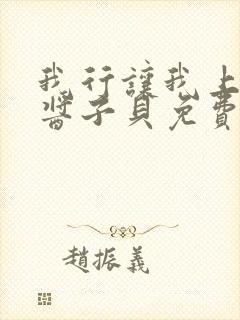 我行讓我上
醬子貝免費
趙振義